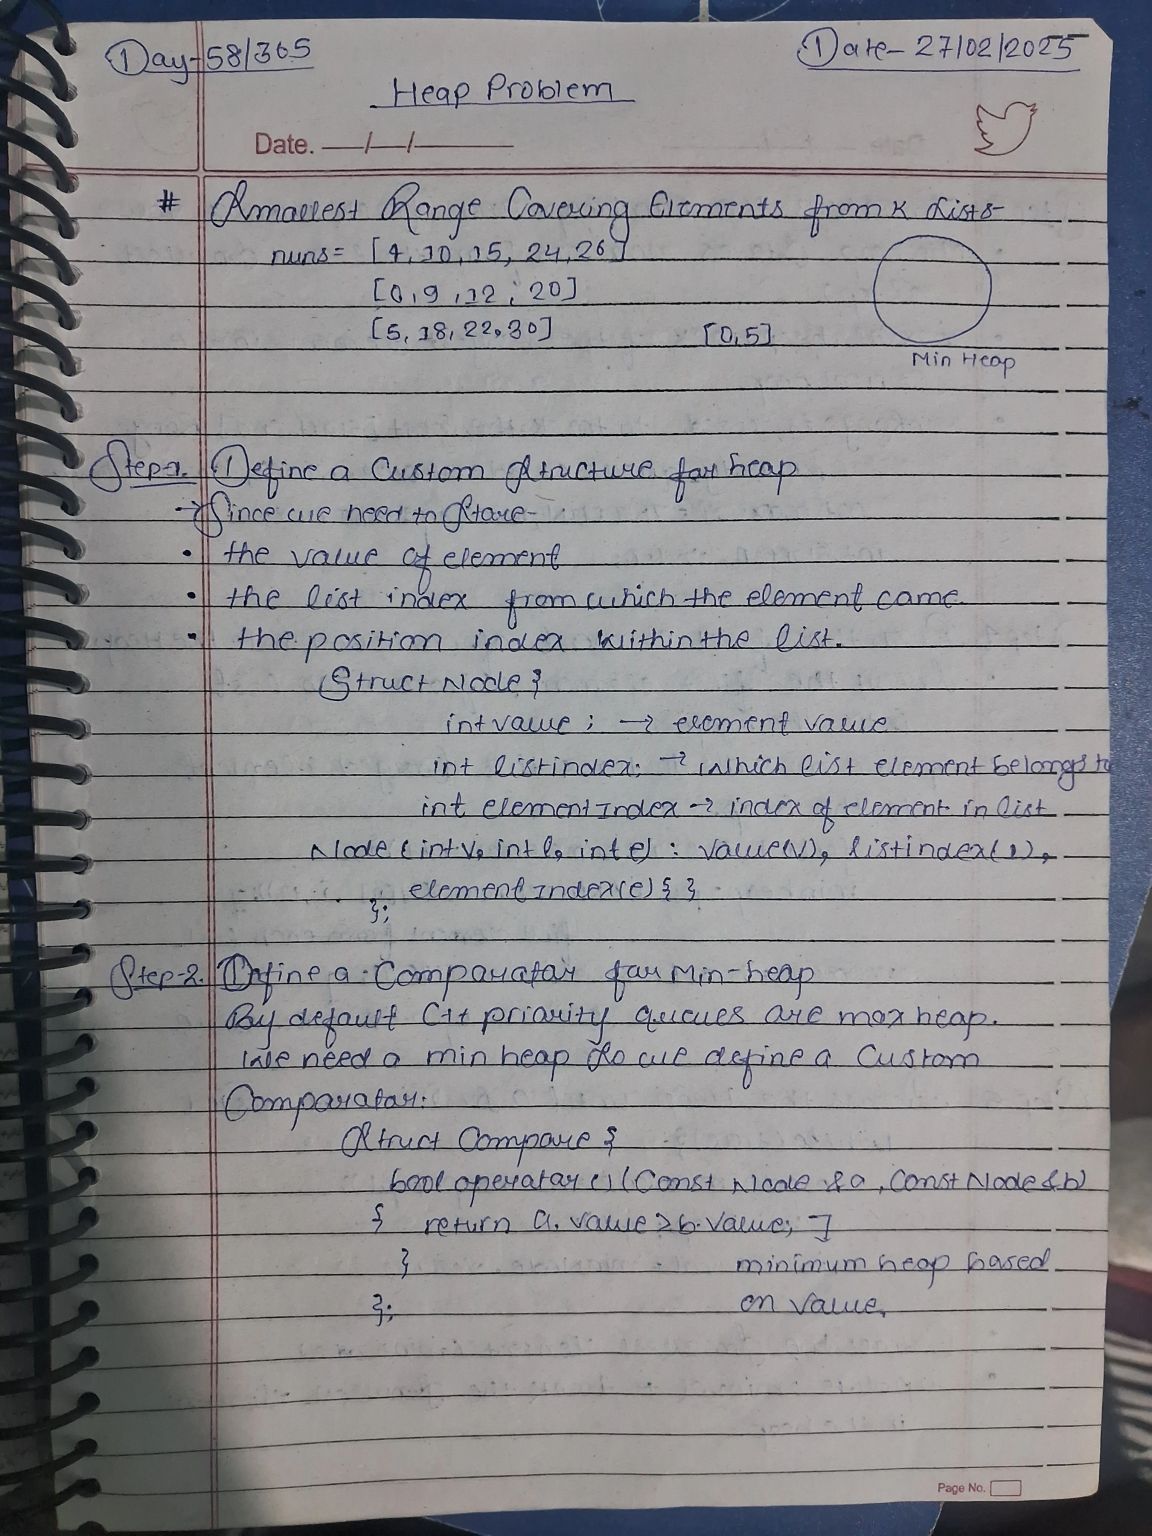 Day-58/365
Date- 27/02/2025
Heap Problem
Date. __/__/____
# Smallest Range Covering Elements from K Lists-
nums= [4,10,15, 24,26]
[0,9,12,20]
[5,18,22,30]
[0,5]
Min Heap
Step-1. Define a Custom Structure for heap
→ Since we need to Store-
• the value of element
• the list index from which the element came.
• the position index within the list.
Struct Node {
int value; → element value
int listindex; → which list element belongs to
int elementIndex → index of element in list
Node (int v, int l, int e) : value(v), listindex(l),
elementIndex(e) { }
};
Step-2. Define a Comparator for Min-heap
By default C++ priority queues are max heap.
We need a min heap so we define a Custom
Comparator:
Struct Compare {
bool operator () (Const Node &a, Const Node &b)
{ return a.value > b.value; ]
}
minimum heap based
};
on value.
Page No.